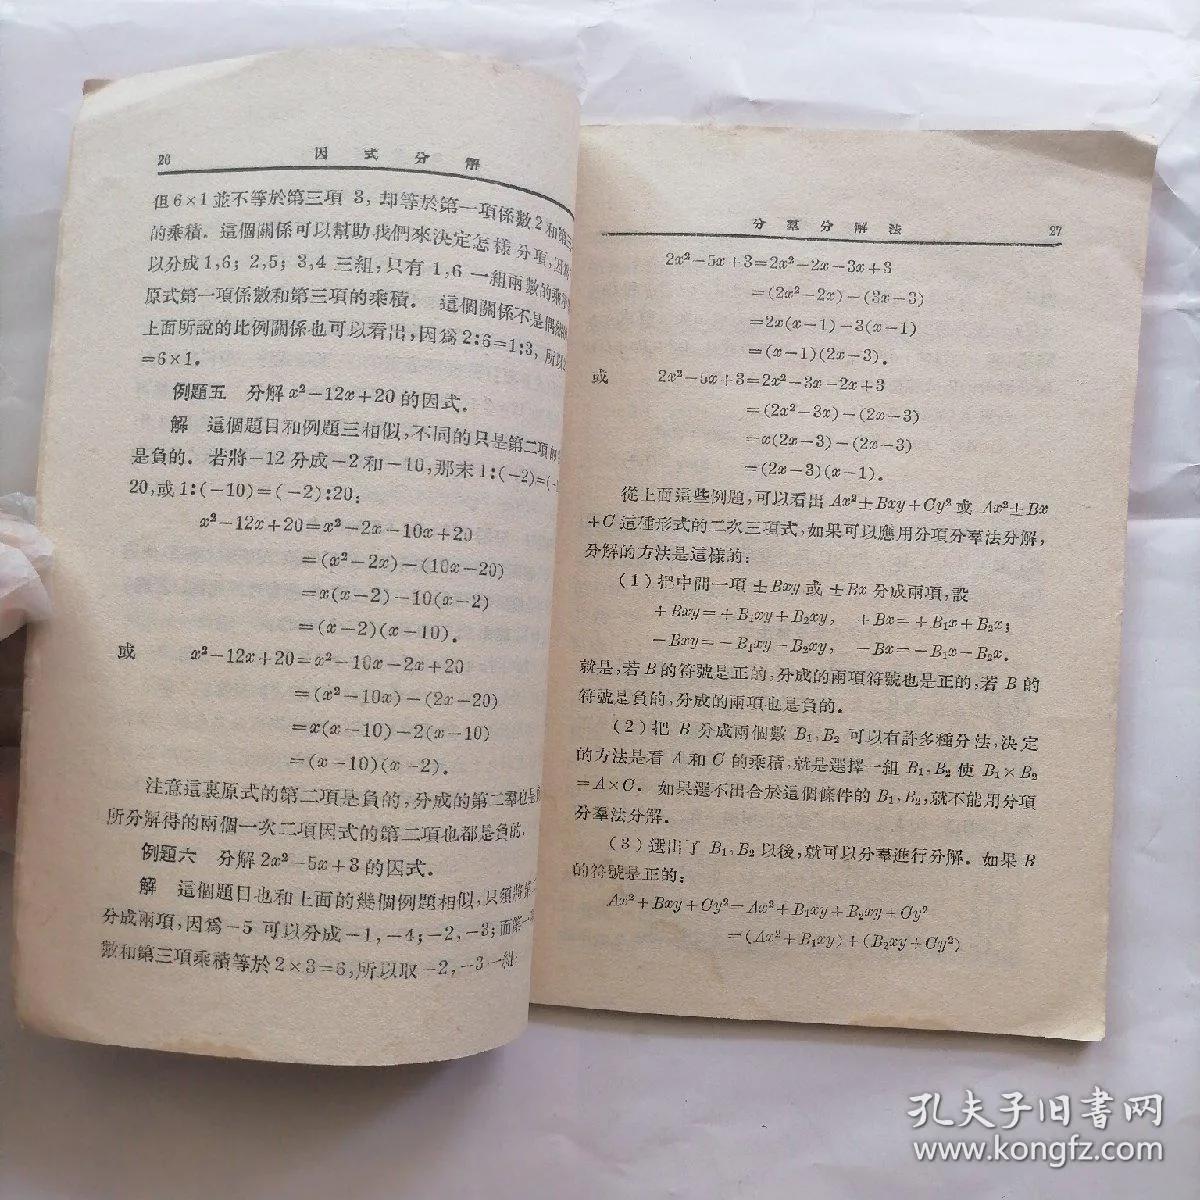 26 因式分解
但6×1並不等於第三項 3, 却等於第一項係數2和第三
的乘積. 這個關係可以幫助我們來決定怎樣分項,
以分成1,6; 2,5; 3,4 三組, 只有 1,6 一組兩數的乘
原式第一項係數和第三項的乘積. 這個關係不是偶然
上面所說的比例關係也可以看出, 因爲 2:6=1:3, 所以
=6×1.
例題五 分解 x²−12x+20 的因式.
解 這個題目和例題三相似, 不同的只是第二項
是負的. 若將−12分成−2和−10, 那末1:(−2)=(
20, 或1:(−10)=(−2):20;
x²−12x+20=x²−2x−10x+20
=(x²−2x)−(10x−20)
=x(x−2)−10(x−2)
=(x−2)(x−10).
或 x²−12x+20=x²−10x−2x+20
=(x²−10x)−(2x−20)
=x(x−10)−2(x−10)
=(x−10)(x−2).
注意這裏原式的第二項是負的, 分成的第二羣也是
所分解得的兩個一次二項因式的第二項也都是負的.
例題六 分解 2x²−5x+3 的因式.
解 這個題目也和上面的幾個例題相似, 只須將第
分成兩項, 因爲 −5 可以分成−1, −4; −2, −3; 而第一
數和第三項乘積等於 2×3=6, 所以取 −2, −3 一組
分羣分解法 27
2x²−5x+3=2x²−2x−3x+3
=(2x²−2x)−(3x−3)
=2x(x−1)−3(x−1)
=(x−1)(2x−3).
或 2x²−5x+3=2x²−3x−2x+3
=(2x²−3x)−(2x−3)
=x(2x−3)−(2x−3)
=(2x−3)(x−1).
從上面這些例題, 可以看出 Ax²±Bxy+Cy² 或 Ax²±Bx
+C 這種形式的二次三項式, 如果可以應用分項分羣法分解,
分解的方法是這樣的:
(1) 把中間一項 ±Bxy 或 ±Bx 分成兩項, 設
+Bxy=+B₁xy+B₂xy, +Bx=+B₁x+B₂x;
−Bxy=−B₁xy−B₂xy, −Bx=−B₁x−B₂x.
就是, 若 B 的符號是正的, 分成的兩項符號也是正的, 若 B 的
符號是負的, 分成的兩項也是負的.
(2) 把 B 分成兩個數 B₁, B₂ 可以有許多種分法, 決定
的方法是看 A 和 C 的乘積, 就是選擇一組 B₁, B₂ 使 B₁×B₂
=A×C. 如果選不出合於這個條件的 B₁, B₂, 就不能用分項
分羣法分解.
(3) 選出了 B₁, B₂ 以後, 就可以分羣進行分解. 如果 B
的符號是正的:
Ax²+Bxy+Cy²=Ax²+B₁xy+B₂xy+Cy²
=(Ax²+B₁xy)+(B₂xy+Cy²)
孔夫子旧書网
www.kongfz.com